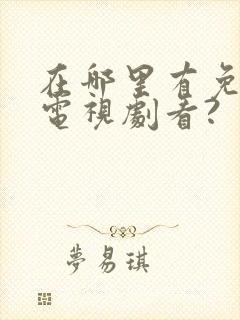 在哪里有免
電視劇看?
夢易琪